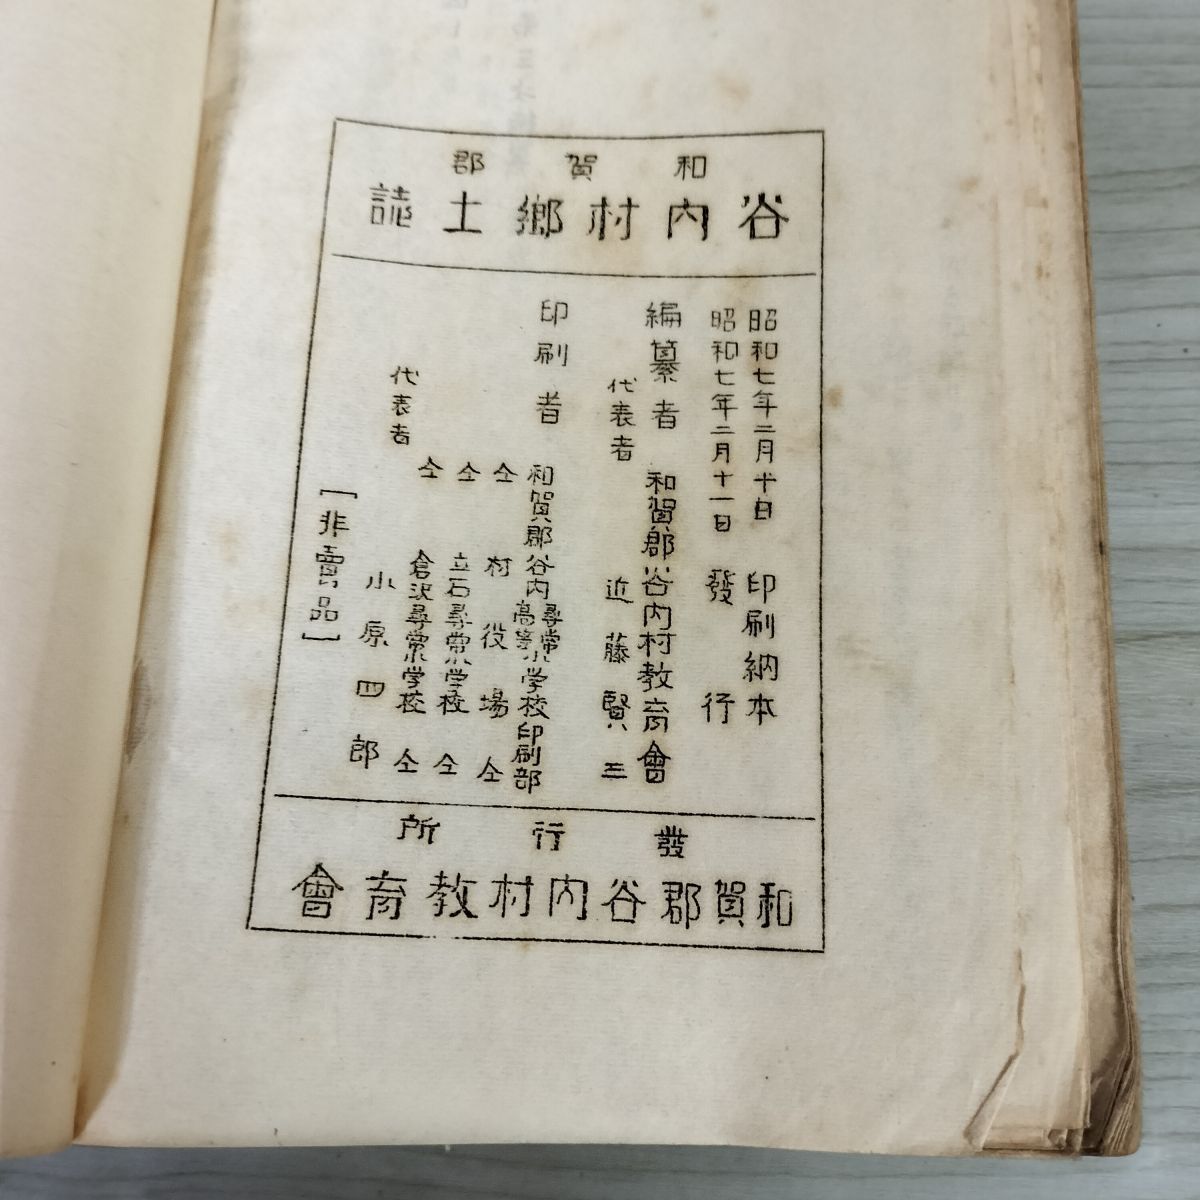 和賀郡
谷内村郷土誌
昭和七年二月十日 印刷納本
昭和七年二月十一日 發行
編纂者 和賀郡谷内村教育會
代表者 近藤賢三
印刷者 和賀郡谷内尋常高等小学校印刷部
仝 村役場 仝
仝 立石尋常小学校 仝
仝 倉沢尋常小学校 仝
代表者 小原四郎
[非賣品]
發行所
和賀郡谷内村教育會